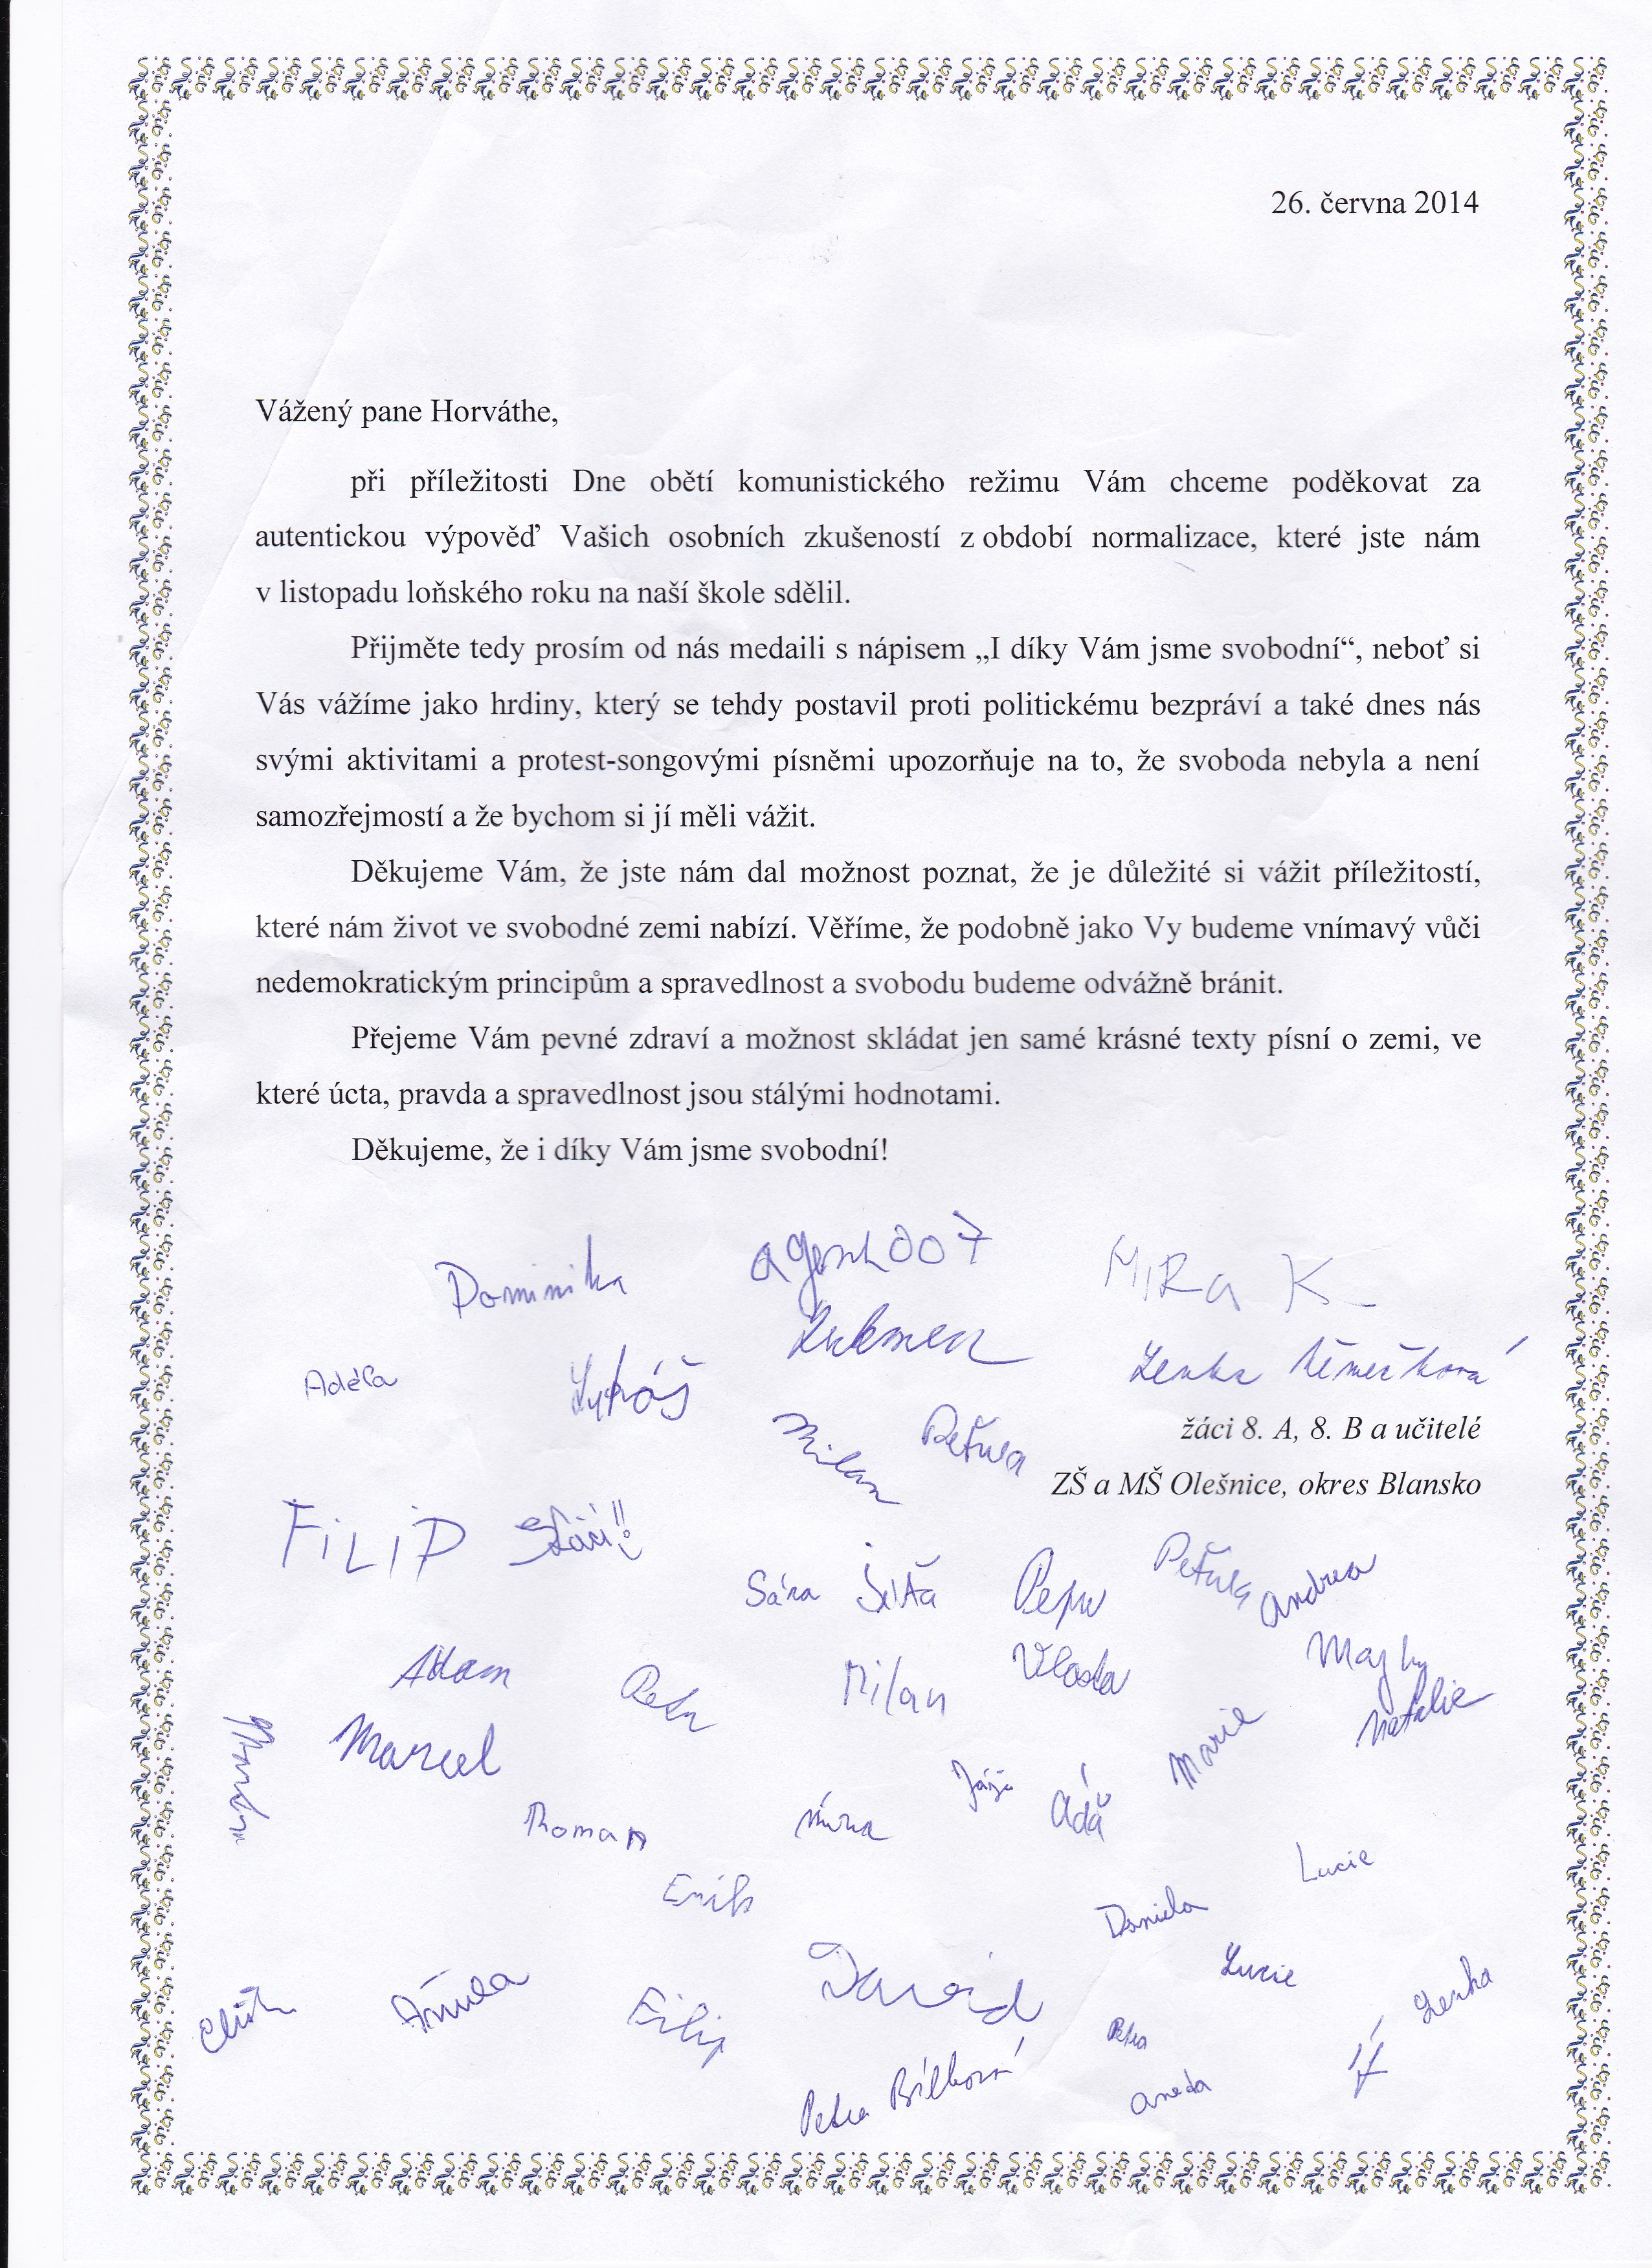 26. června 2014
Vážený pane Horváthe,
při příležitosti Dne obětí komunistického režimu Vám chceme poděkovat za
autentickou výpověď Vašich osobních zkušeností z období normalizace, které jste nám
v listopadu loňského roku na naší škole sdělil.
Přijměte tedy prosím od nás medaili s nápisem „I díky Vám jsme svobodní“, neboť si
Vás vážíme jako hrdiny, který se tehdy postavil proti politickému bezpráví a také dnes nás
svými aktivitami a protest-songovými písněmi upozorňuje na to, že svoboda nebyla a není
samozřejmostí a že bychom si jí měli vážit.
Děkujeme Vám, že jste nám dal možnost poznat, že je důležité si vážit příležitostí,
které nám život ve svobodné zemi nabízí. Věříme, že podobně jako Vy budeme vnímavý vůči
nedemokratickým principům a spravedlnost a svobodu budeme odvážně bránit.
Přejeme Vám pevné zdraví a možnost skládat jen samé krásné texty písní o zemi, ve
které úcta, pravda a spravedlnost jsou stálými hodnotami.
Děkujeme, že i díky Vám jsme svobodní!
Dominika agent 007 MiRa K.
Adéla Lukáš Lenka Němečková
Milan Peťula
žáci 8. A, 8. B a učitelé
ZŠ a MŠ Olešnice, okres Blansko
FiLiP
Sára Pepw Peťula Andrea
Adam Petr Milan Vlasta
Marcel Marie Natalie
Roman Míra Áďa
Emil Lucie
Daniela
David Lucie
Filip Petra Lenka
Petra Bílková Aneta